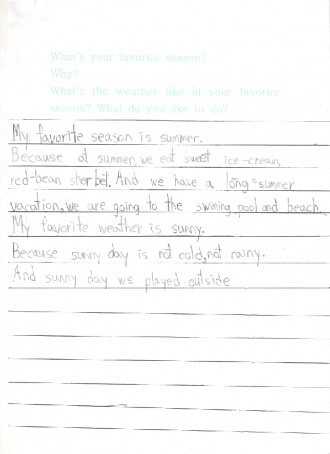 What's your favorite season?
Why?
What's the weather like in your favorite
season? What do you like to do?
My favorite season is summer.
Because at summer, we eat sweet ice-cream,
red-bean sherbet. And we have a long summer
vacation. We are going to the swiming pool and beach.
My favorite weather is sunny.
Because sunny day is not cold, not rainy.
And sunny day we played outside.